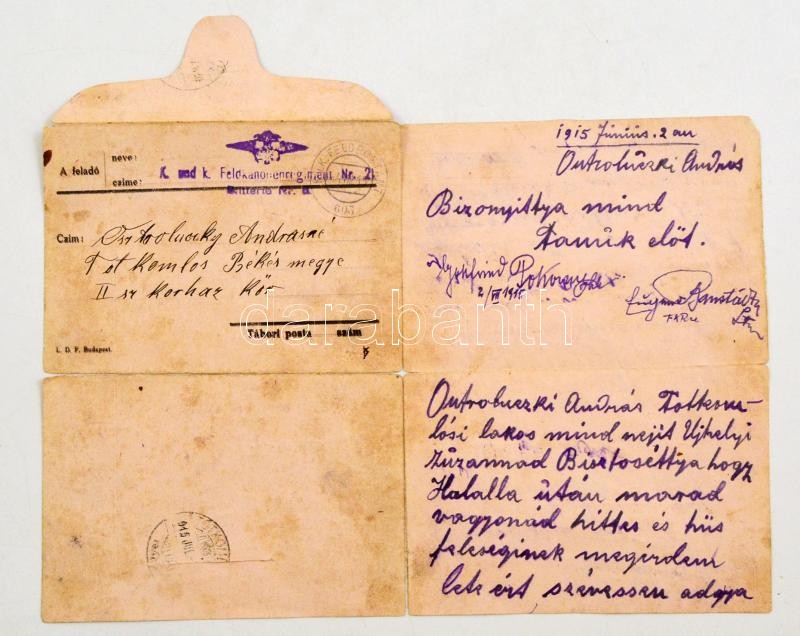 A feladó neve:
czime: K. und k. Feldkanonenregiment Nr. 21
Batterie Nr.
K.u.K. FELDPOST
Czim: Osztroluczky Andrasné
Tót komlos Békés megye
II sz korhaz Kör
Tábori posta szám
L. D. F. Budapest.
1915 Június. 2 an
Ontroluczki András
Bizonyittya mind
Tanúk elöt.
Gottfried
2/VI 1915
Eugen
darabanth
Ontroluczki András Tottkom-
lósi lakos mind nejit Ujhelyi
Zúzannad Biztoséttya hogy
Halalla útán marad
vagyonád hittes és hüs
feleséginek megérdem
lete ért szévessen adgya